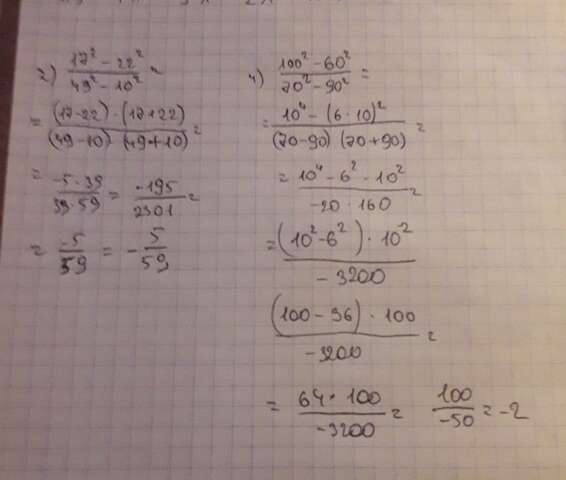 2) (17² - 22²)/(49² - 10²) =
= ((17-22)·(17+22))/((49-10)·(49+10)) =
= (-5·39)/(39·59) = (-195)/2301 =
= (-5)/59 = -5/59
4) (100² - 60²)/(70² - 90²) =
= (10⁴ - (6·10)²)/((70-90)(70+90)) =
= (10⁴ - 6²·10²)/(-20·160) =
= ((10² - 6²)·10²)/(-3200)
((100 - 36)·100)/(-3200) =
= (64·100)/(-3200) = 100/(-50) = -2